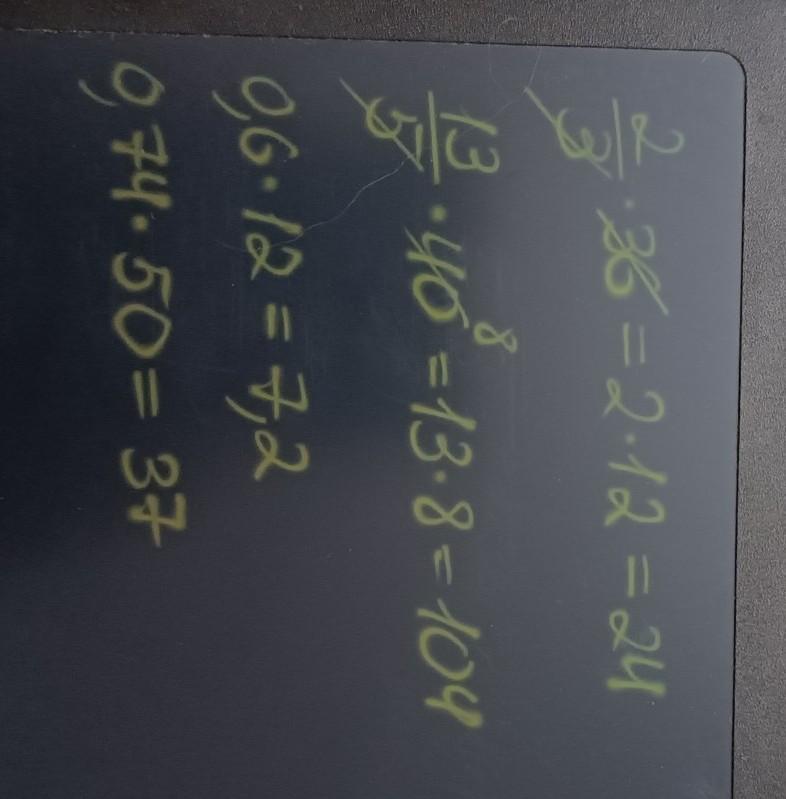 2/3 · 36 = 2 · 12 = 24
13/5 · 40 8 = 13 · 8 = 104
0,6 · 12 = 7,2
0,74 · 50 = 37